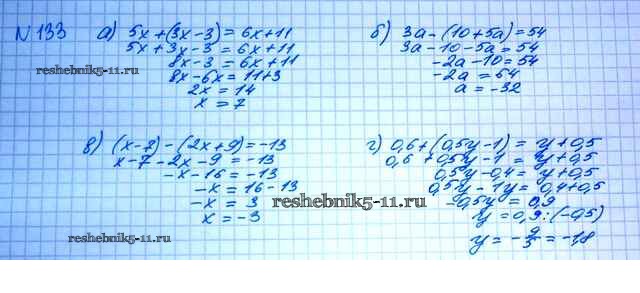 N 133
а) 5x+(3x-3)=6x+11
5x+3x-3=6x+11
8x-3=6x+11
8x-6x=11+3
2x=14
x=7
reshebnik5-11.ru
б) 3a-(10+5a)=54
3a-10-5a=54
-2a-10=54
-2a=64
a=-32
в) (x-7)-(2x+9)=-13
x-7-2x-9=-13
-x-16=-13
-x=16-13
-x=3
x=-3
reshebnik5-11.ru
г) 0,6+(0,5y-1)=y+0,5
0,6+0,5y-1=y+0,5
0,5y-0,4=y+0,5
0,5y-1y=0,4+0,5
-0,5y=0,9
y=0,9:(-0,5)
y=-9/5=-1,8
reshebnik5-11.ru